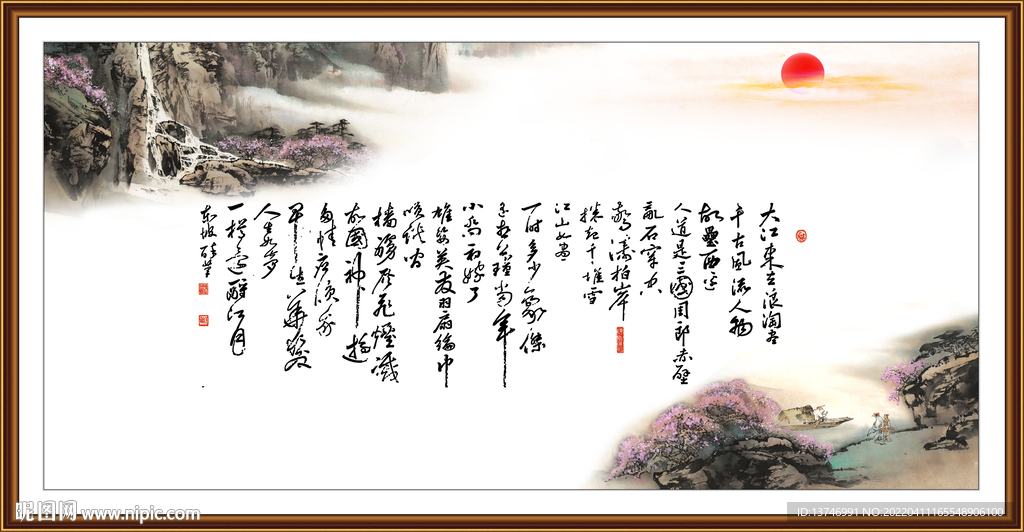 大江東去浪淘盡
千古風流人物
故壘西邊
人道是三國周郎赤壁
亂石穿空
驚濤拍岸
捲起千堆雪
江山如畫
一時多少豪傑
遙想公瑾當年
小喬初嫁了
雄姿英發羽扇綸巾
談笑間
檣艣灰飛煙滅
故國神遊
多情應笑我
早生華髮
人生如夢
一樽還酹江月
東坡醉筆
昵图网 www.nipic.com
ID:13746991 NO:20220411165548906100